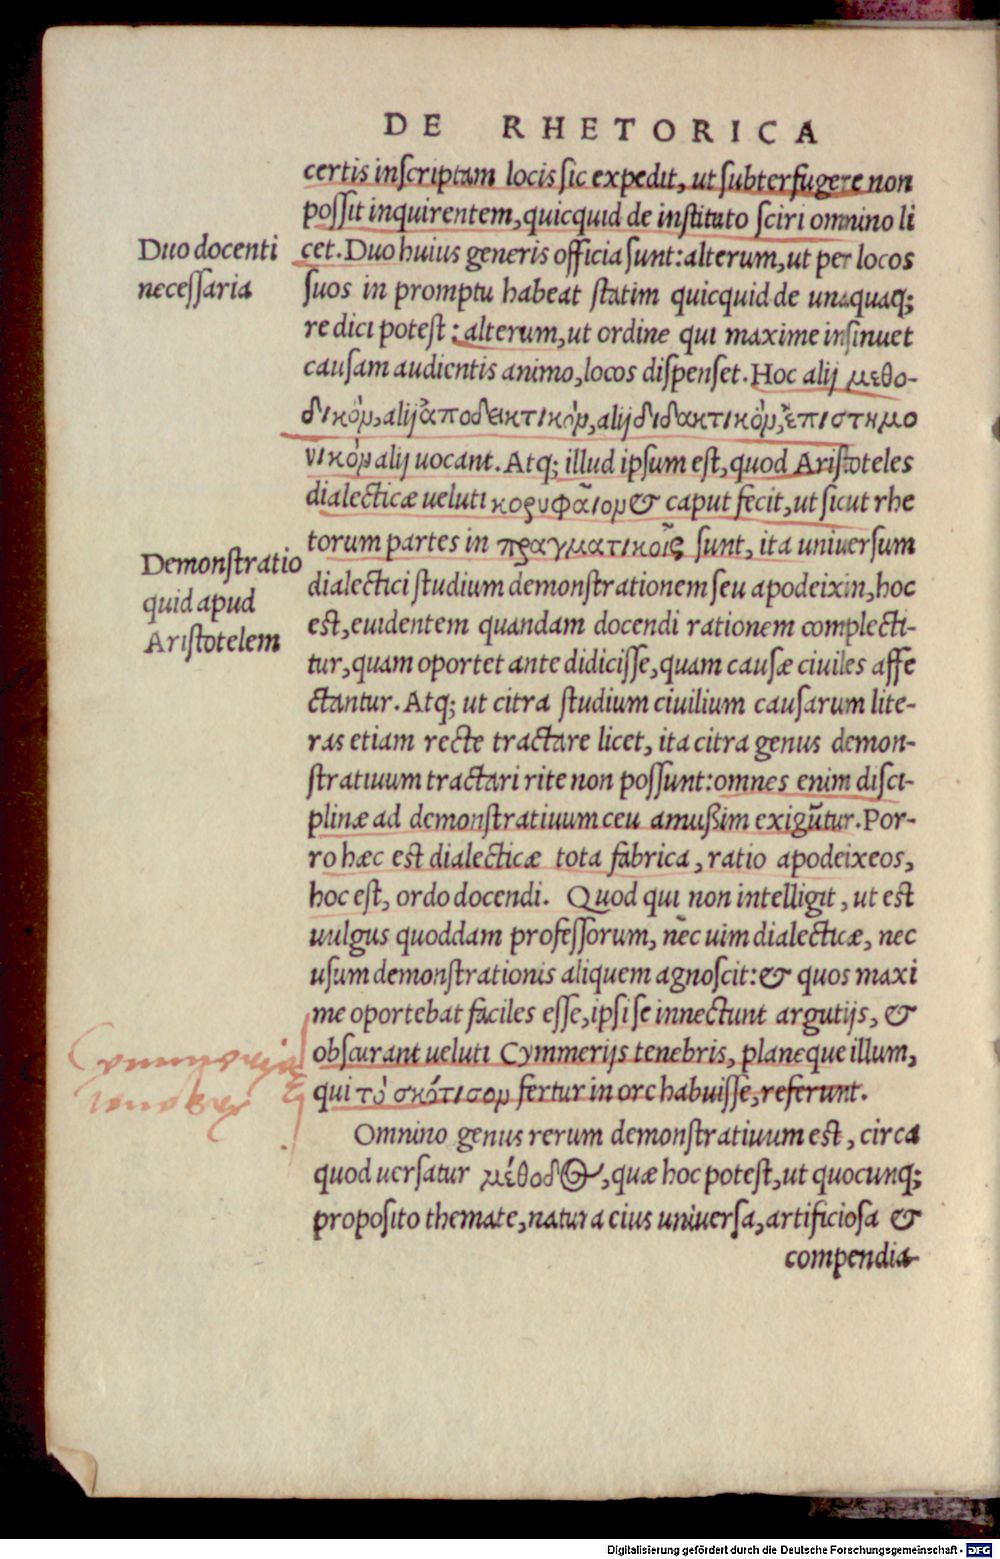 DE RHETORICA
certis inſcriptam locis ſic expedit, ut ſubterfugere non
poſſit inquirentem, quicquid de inſtituto ſciri omnino li
cet. Duo huius generis officia ſunt: alterum, ut per locos
ſuos in promptu habeat ſtatim quicquid de unaquaq;
re dici poteſt: alterum, ut ordine qui maxime inſinuet
cauſam audientis animo, locos diſpenſet. Hoc alij μεθο-
δικὸν, alij ἀποδεικτικὸν, alij διδακτικὸν, ἐπιστημο
νικὸν alij uocant. Atq; illud ipſum eſt, quod Ariſtoteles
dialecticæ ueluti κορυφαῖον & caput fecit, ut ſicut rhe
torum partes in πραγματικοῖς ſunt, ita uniuerſum
dialectici ſtudium demonſtrationem ſeu apodeixin, hoc
eſt, euidentem quandam docendi rationem complecti-
tur, quam oportet ante didiciſſe, quam cauſæ ciuiles affe
ctantur. Atq; ut citra ſtudium ciuilium cauſarum lite-
ras etiam recte tractare licet, ita citra genus demon-
ſtratiuum tractari rite non poſſunt: omnes enim diſci-
plinæ ad demonſtratiuum ceu amußim exigūtur. Por-
ro hæc eſt dialecticæ tota fabrica, ratio apodeixeos,
hoc eſt, ordo docendi. Quod qui non intelligit, ut eſt
uulgus quoddam profeſſorum, nec uim dialecticæ, nec
uſum demonſtrationis aliquem agnoſcit: & quos maxi
me oportebat faciles eſſe, ipſi ſe innectunt argutijs, &
obſcurant ueluti Cymmerijs tenebris, planeque illum,
qui τὸ σκότισον fertur in orc habuiſſe, referunt.
Omnino genus rerum demonſtratiuum eſt, circa
quod uerſatur μέθοδος, quæ hoc poteſt, ut quocunq;
propoſito themate, natura eius uniuerſa, artificioſa &
compendia-
Duo docenti
neceſſaria
Demonſtratio
quid apud
Ariſtotelem
Digitalisierung gefördert durch die Deutsche Forschungsgemeinschaft - DFG